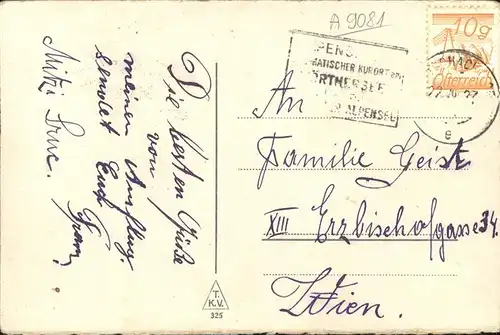 A 9081
10g
Österreich
PENS
ATISCHER KURORT
RTHERSEE
ALPENSEE
An
Familie Geist
XIII Erzbischofgasse 34.
Wien.
Die besten Grüße
von
meinem Ausflug.
sendet Euch
Franz
Mitzi
T.
K.V.
325